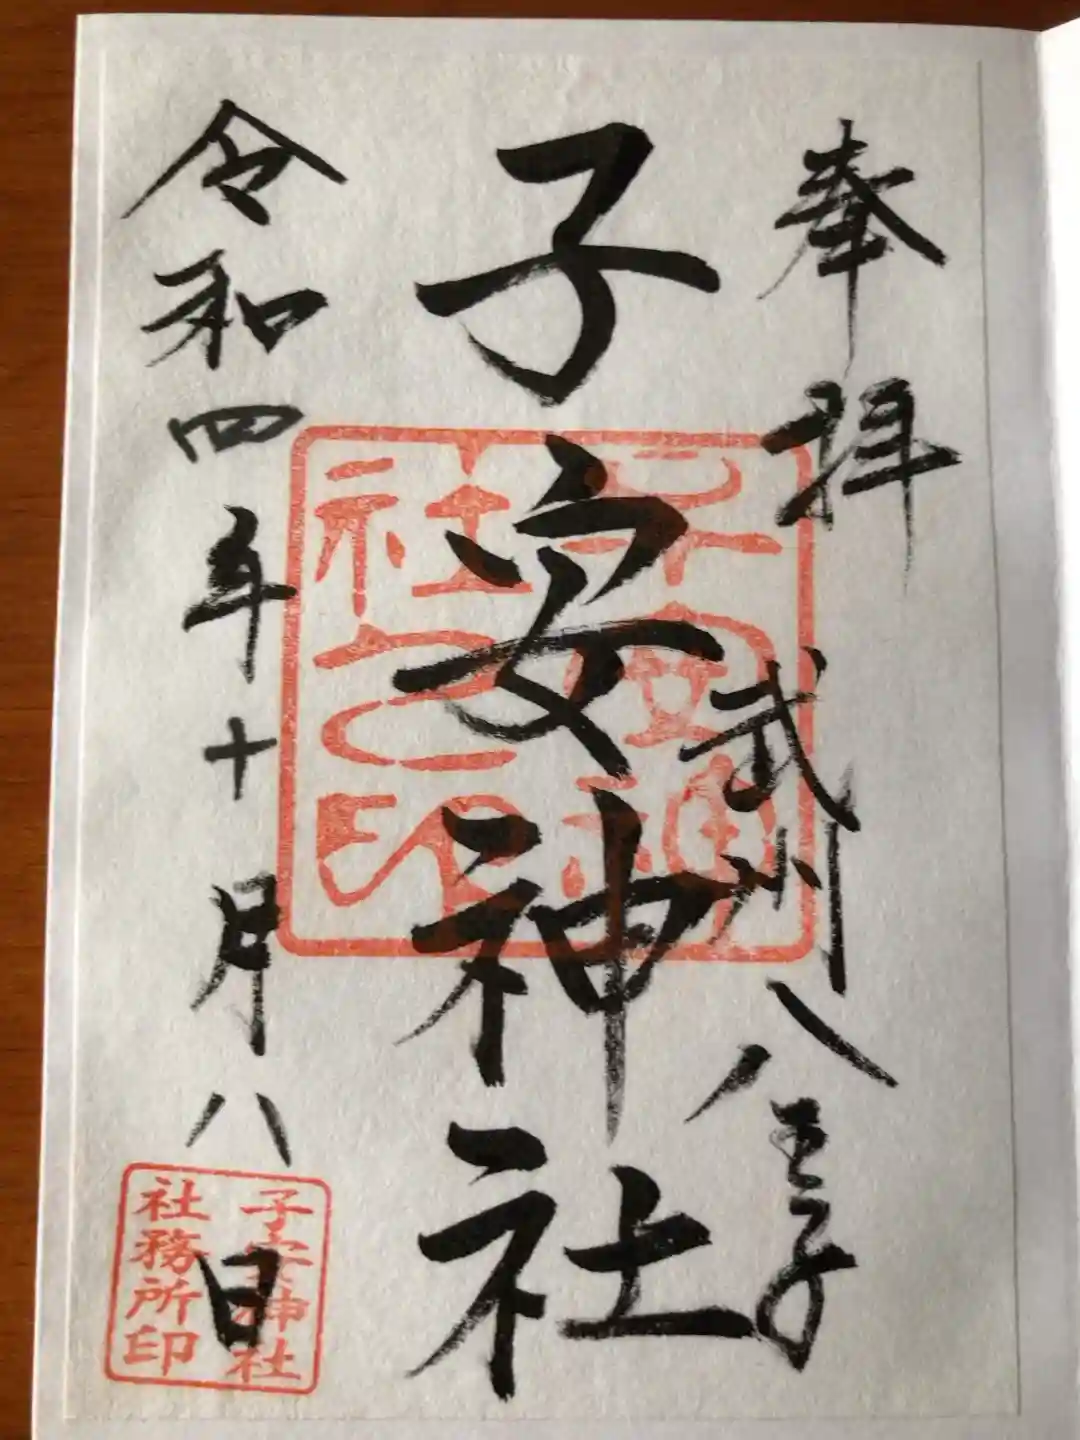 奉拝
武州八王子
子安神社
令和四年十月八日
子安神
社之印
子安神社
社務所印